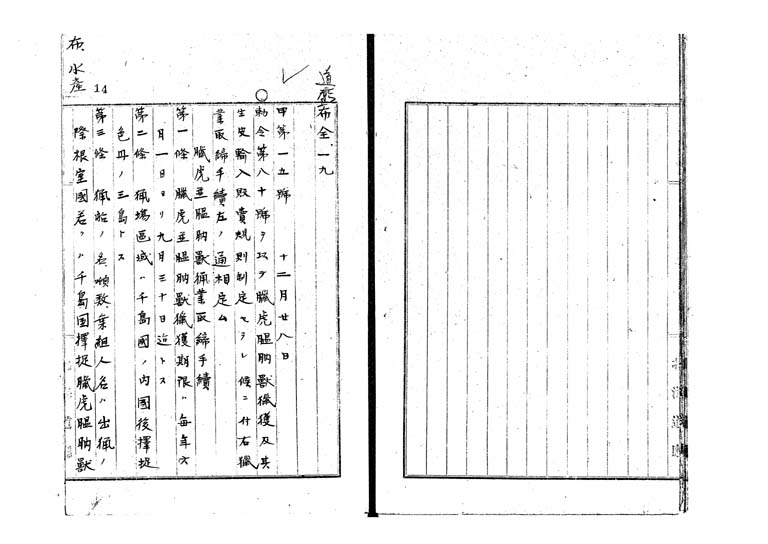 布水産 14
道庁布全一九
甲第一五號 十二月廿八日
勅令第八十號ヲ以テ臘虎膃肭獣猟獲及其
生皮輸入販賣規則制定セラレ候ニ付右猟
業取締手續左ノ通相定ム
臘虎並膃肭獣猟業取締手續
第一條 臘虎並膃肭獣猟獲期限ハ毎年六
月一日ヨリ九月三十日迄トス
第二條 猟場區域ハ千島國ノ内國後擇捉
色丹ノ三島トス
第三條 猟船ノ名噸数、乗組人名ハ出猟ノ
際根室國若クハ千島国擇捉臘虎膃肭獣